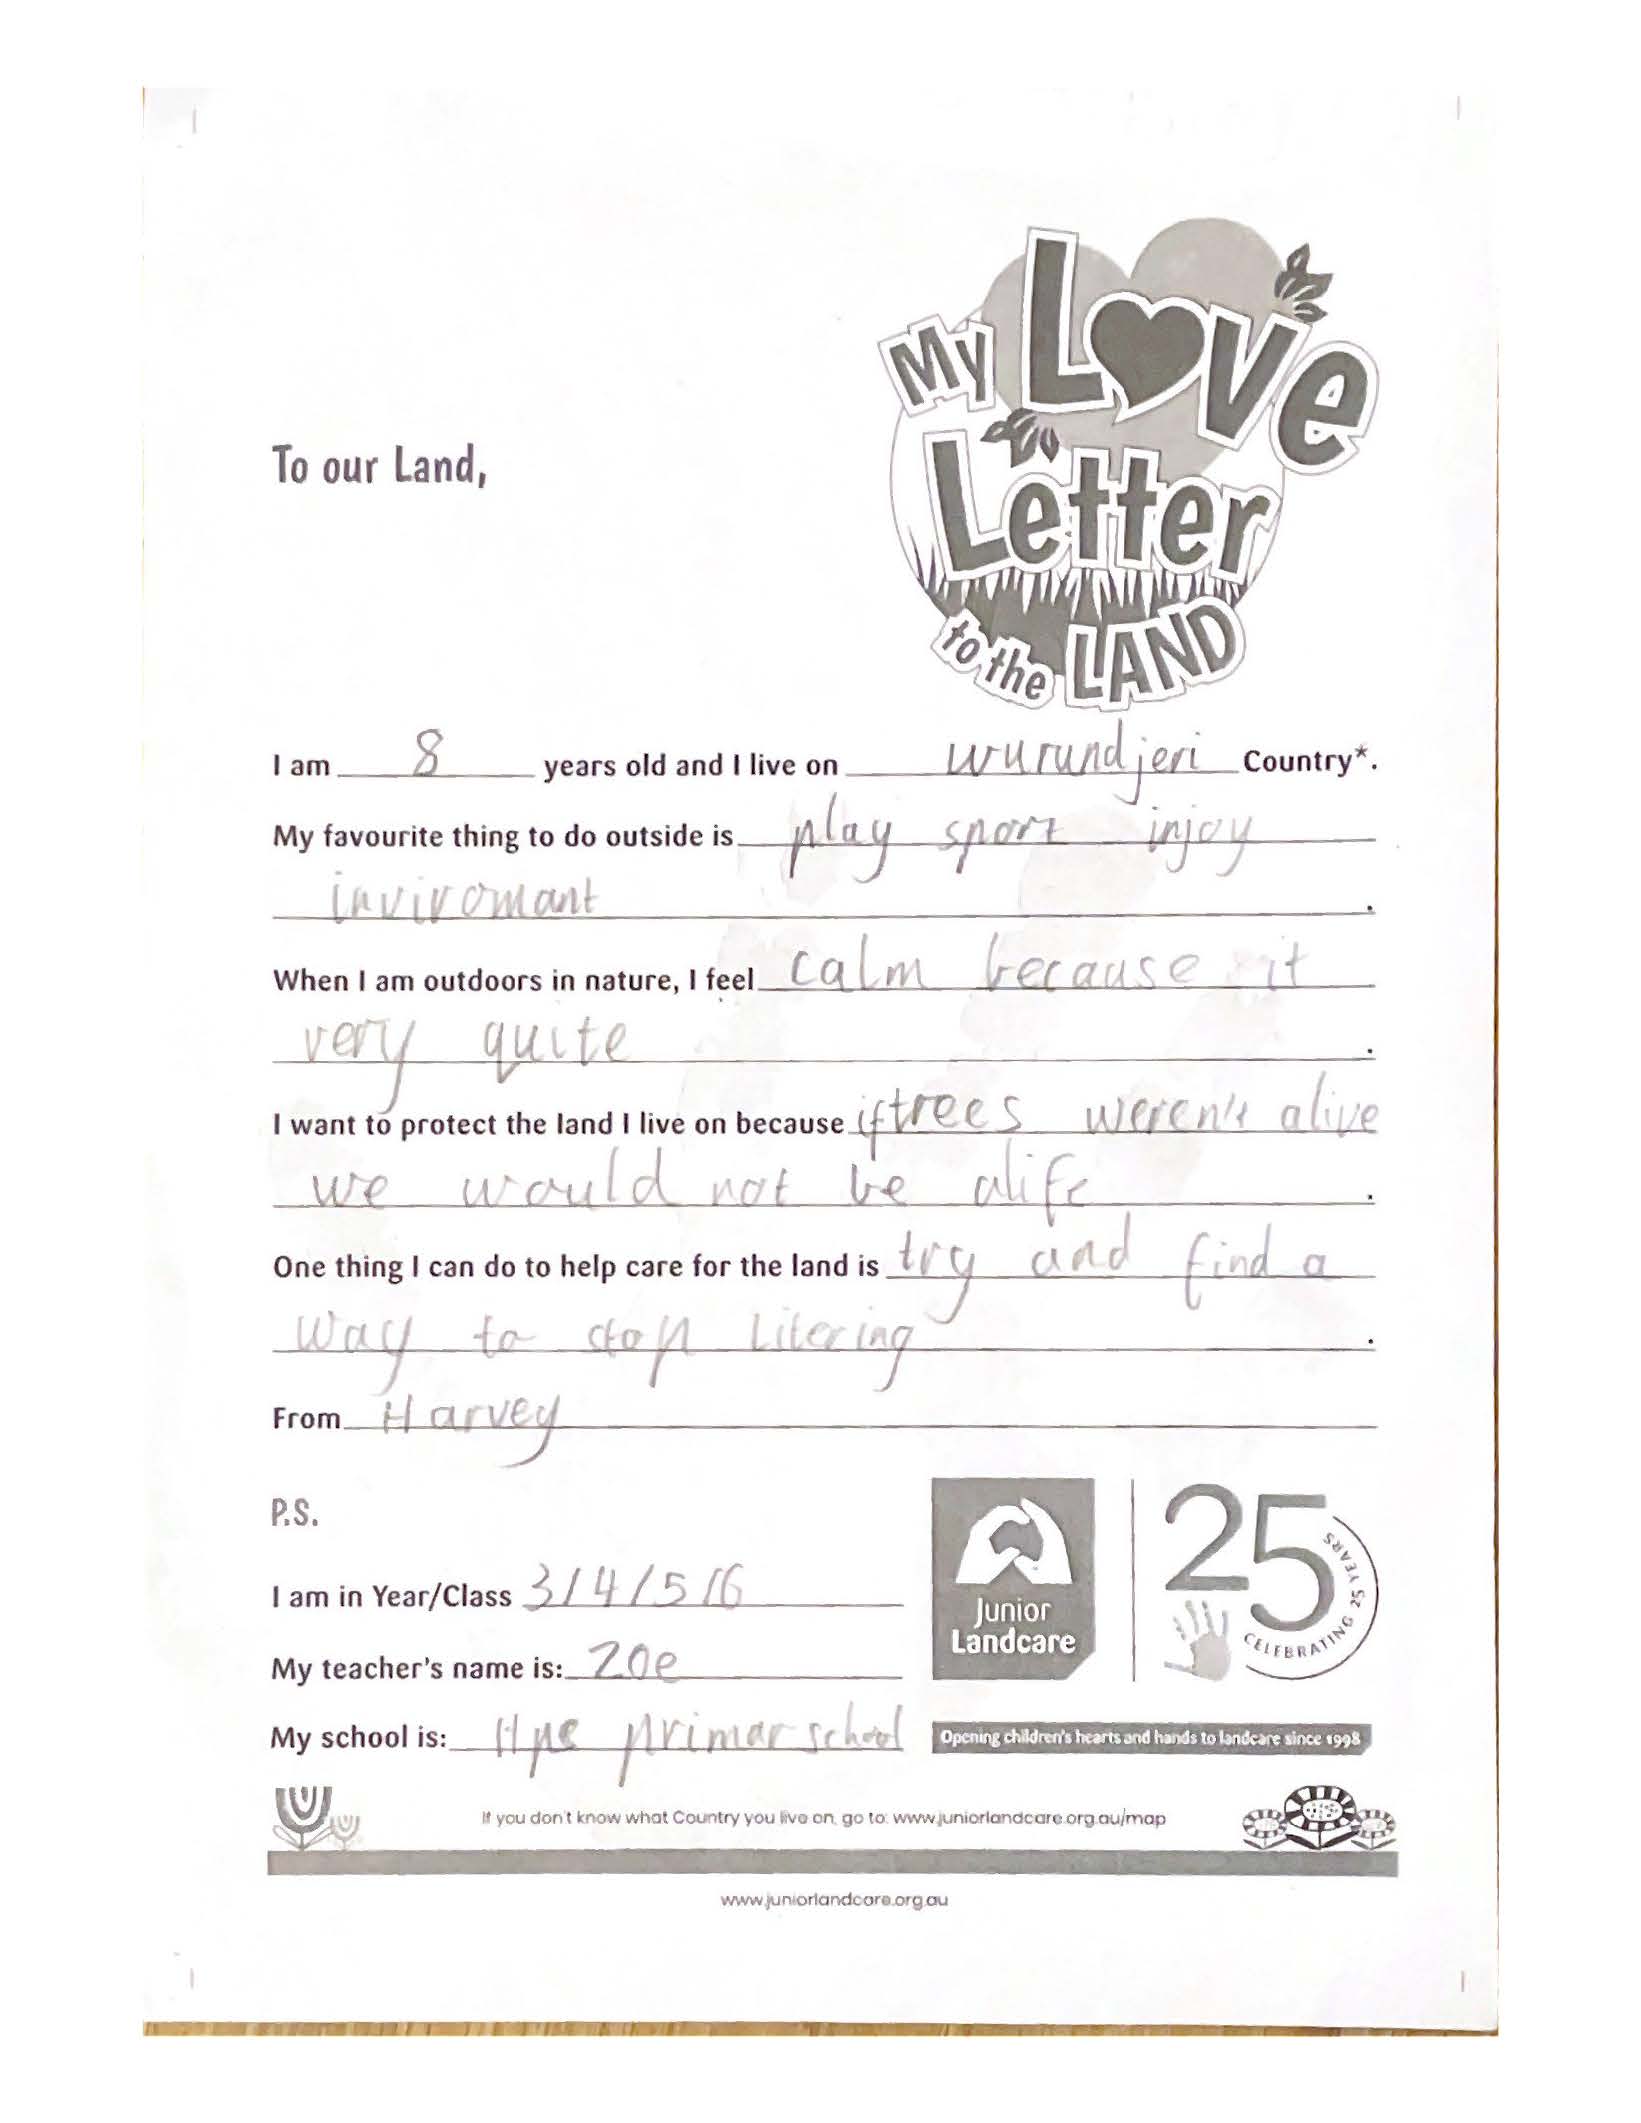 My Love
Letter
to the LAND
To our Land,
I am 8 years old and I live on wurundjeri Country*.
My favourite thing to do outside is play sport injoy
inviromant.
When I am outdoors in nature, I feel calm because it
very quite.
I want to protect the land I live on because if trees weren't alive
we would not be alife.
One thing I can do to help care for the land is try and find a
way to stop litering.
From Harvey
P.S.
I am in Year/Class 3/4/5/6
My teacher's name is: Zoe
My school is: primar school
Junior
Landcare
25
CELEBRATING 25 YEARS
Opening children's hearts and hands to landcare since 1998
If you don't know what Country you live on, go to: www.juniorlandcare.org.au/map
www.juniorlandcare.org.au